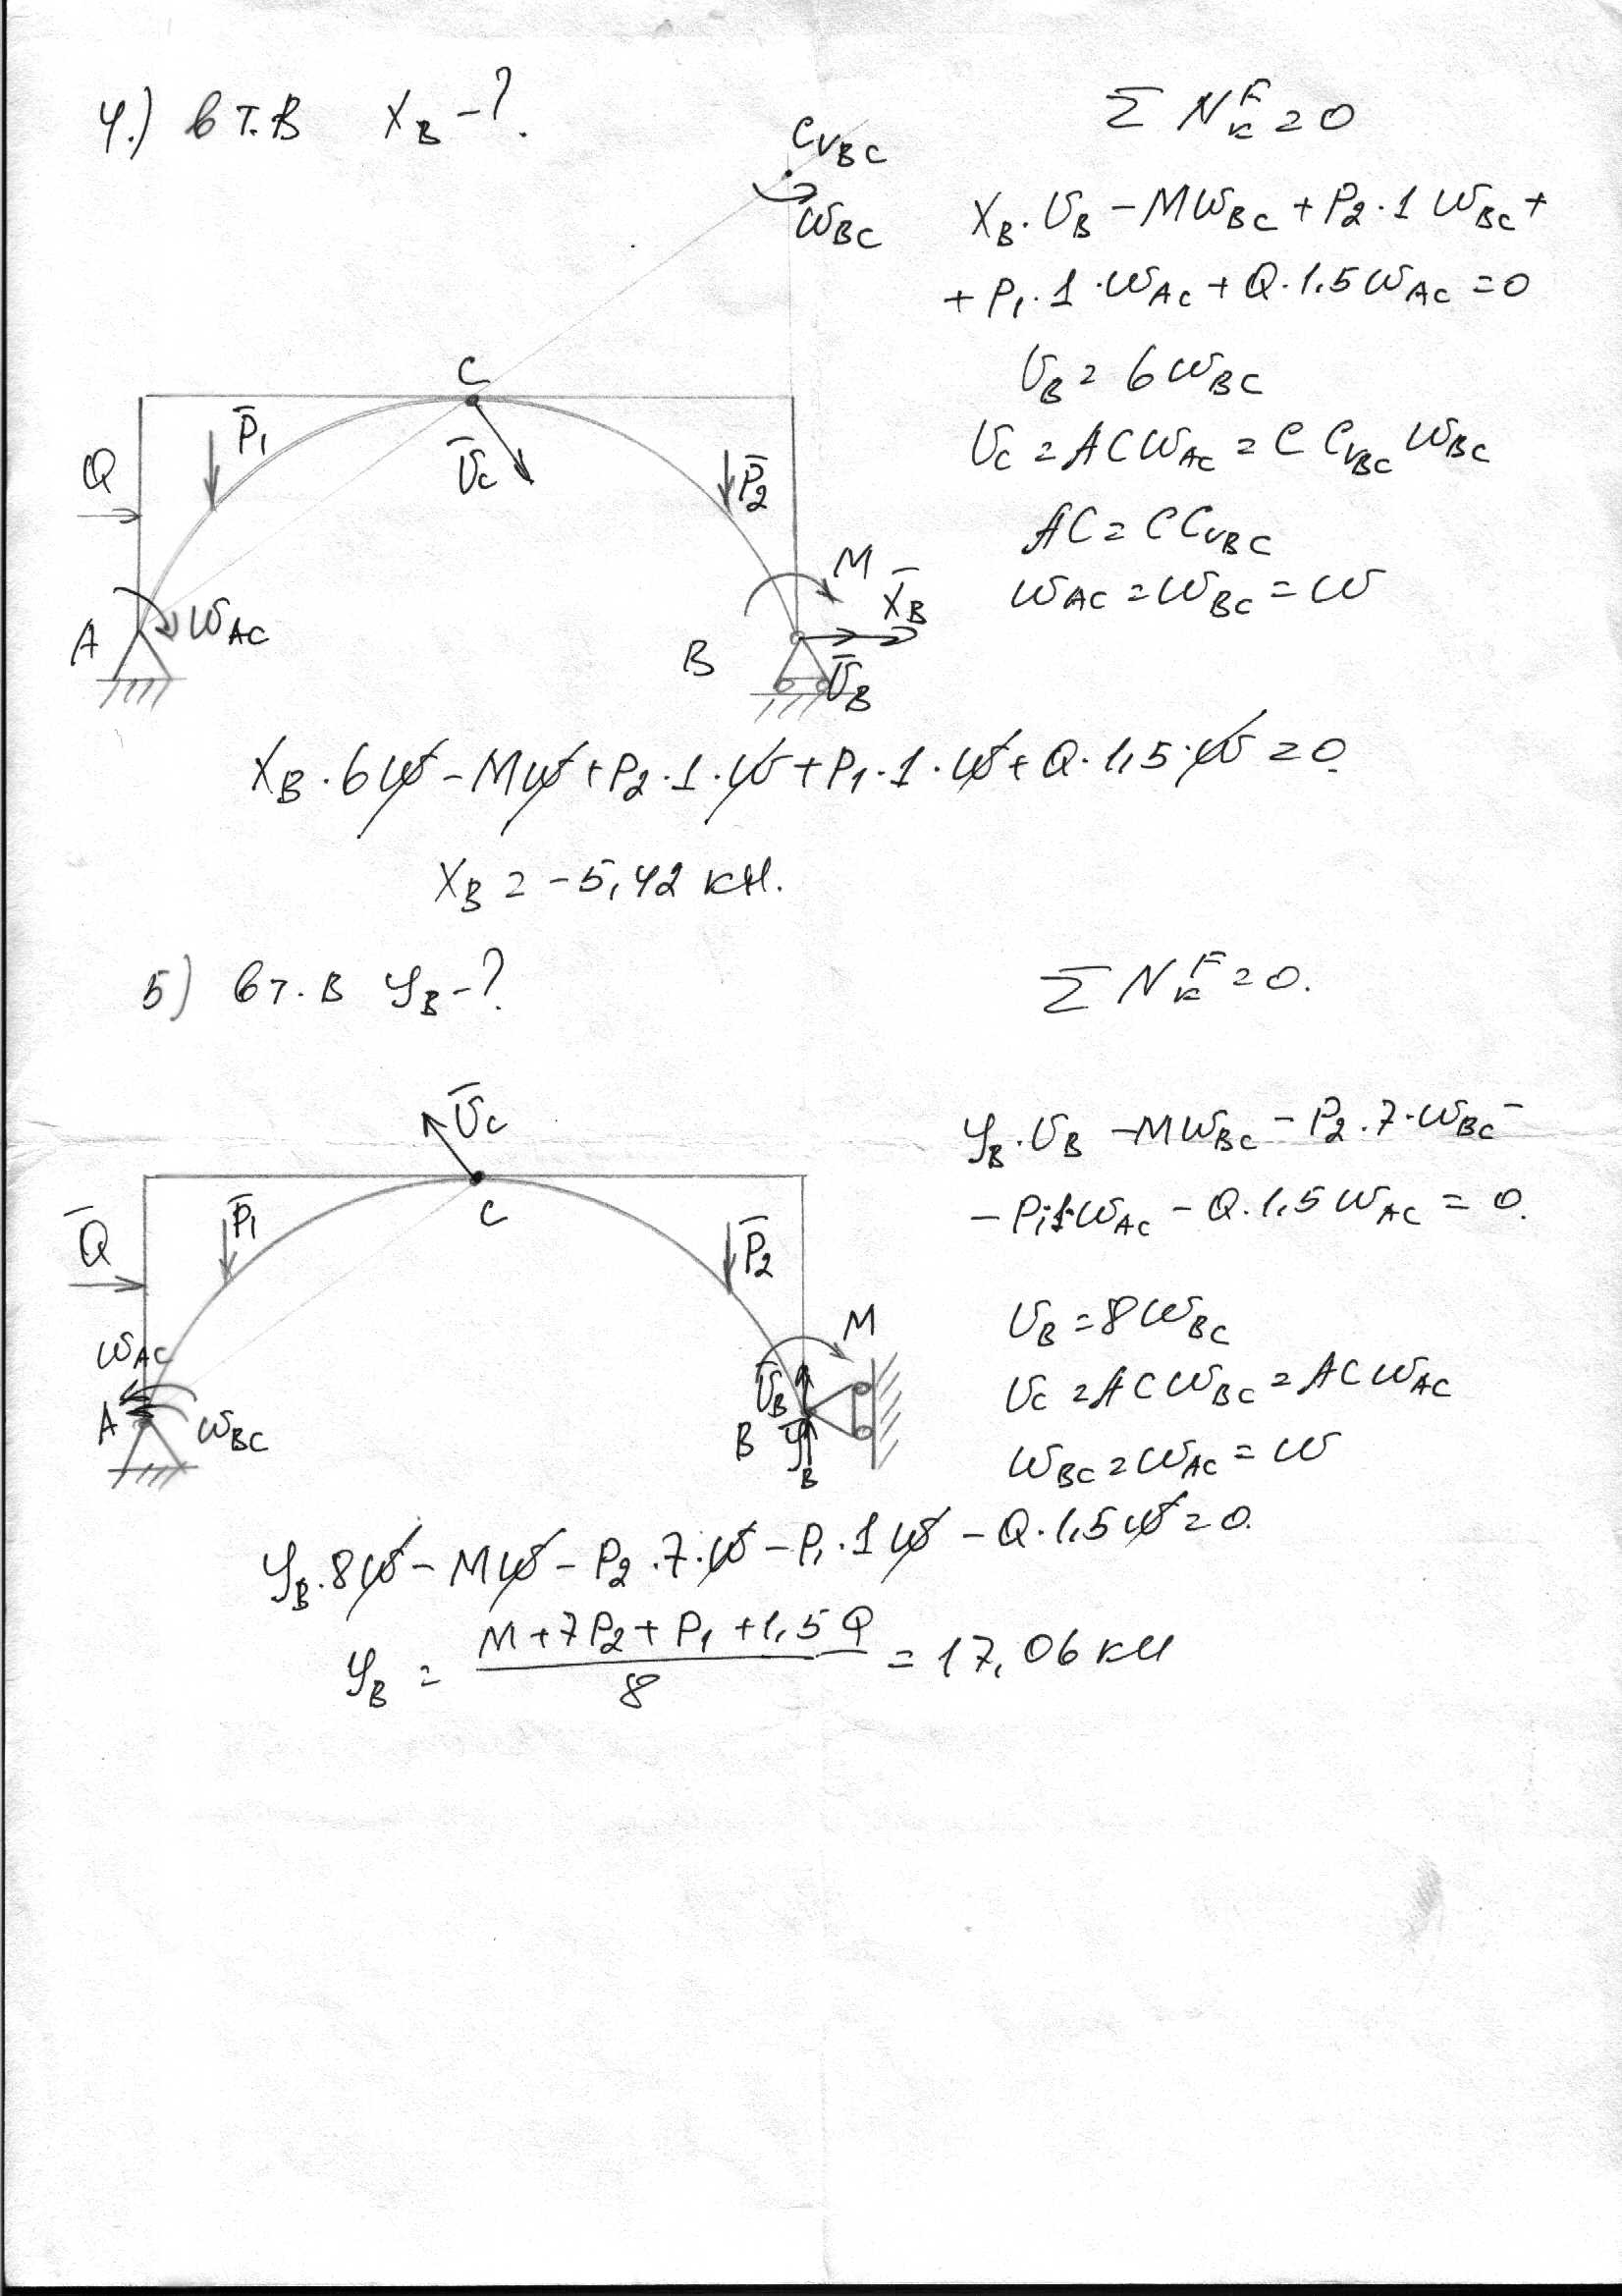 4.) в т. В X_B - ?
Σ N_k^F = 0
C_VBC
ω_BC
X_B · U_B - Mω_BC + P_2 · 1 ω_BC +
+ P_1 · 1 · ω_AC + Q · 1,5 ω_AC = 0
U_B = 6 ω_BC
U_C = AC ω_AC = C C_VBC ω_BC
AC = C C_VBC
ω_AC = ω_BC = ω
C
P̄_1
Ū_C
P̄_2
Q
M
X̄_B
A
ω_AC
B
Ū_B
X_B · 6ω - Mω + P_2 · 1 · ω + P_1 · 1 · ω + Q · 1,5 · ω = 0.
X_B = -5,42 кН.
5) в т. В Y_B - ?
Σ N_k^F = 0.
Ū_C
Y_B · U_B - Mω_BC - P_2 · 7 · ω_BC -
- P_1 · 1 · ω_AC - Q · 1,5 ω_AC = 0.
U_B = 8 ω_BC
U_C = AC ω_BC = AC ω_AC
ω_BC = ω_AC = ω
C
P̄_1
P̄_2
Q̄
M
ω_AC
Ū_B
A
ω_BC
B
Ȳ_B
Y_B · 8ω - Mω - P_2 · 7 · ω - P_1 · 1ω - Q · 1,5ω = 0.
Y_B = (M + 7P_2 + P_1 + 1,5 Q) / 8 = 17,06 кН